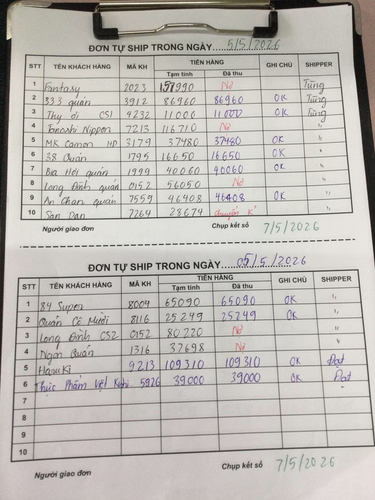 ĐƠN TỰ SHIP TRONG NGÀY 5/5/2026
STT TÊN KHÁCH HÀNG MÃ KH TIỀN HÀNG GHI CHÚ SHIPPER
Tạm tính Đã thu
1 Fantasy 2023 157990 Nợ Tùng
2 333 quán 3912 86960 86960 OK Tùng
3 Thy ơi CS1 4232 11000 11000 OK Tùng
4 Tanoshi Nippon 7213 116710 Nợ "
5 MK Canon HP 3179 37480 37480 OK "
6 38 Quán 1795 16650 16650 OK "
7 Bia Hơi quán 1999 40060 40060 OK "
8 Long Đình quán 0152 56050 Nợ "
9 An Chan quán 7559 46408 46408 OK "
10 San Dan 7264 28674 chuyển K "
Người giao đơn Chụp kết số 7/5/2026
ĐƠN TỰ SHIP TRONG NGÀY 05/5/2026
STT TÊN KHÁCH HÀNG MÃ KH TIỀN HÀNG GHI CHÚ SHIPPER
Tạm tính Đã thu
1 84 Super 8004 65090 65090 OK "
2 Quán Cô Mười 8116 25249 25749 OK "
3 Long Đình CS2 0152 80220 Nợ "
4 Ngon Quán 1316 37698 Nợ "
5 Haruki 9213 109310 109310 OK Đạt
6 Thực Phẩm Việt Nghi 5926 39000 39000 OK Đạt
7
8
9
10
Người giao đơn Chụp kết số 7/5/2026